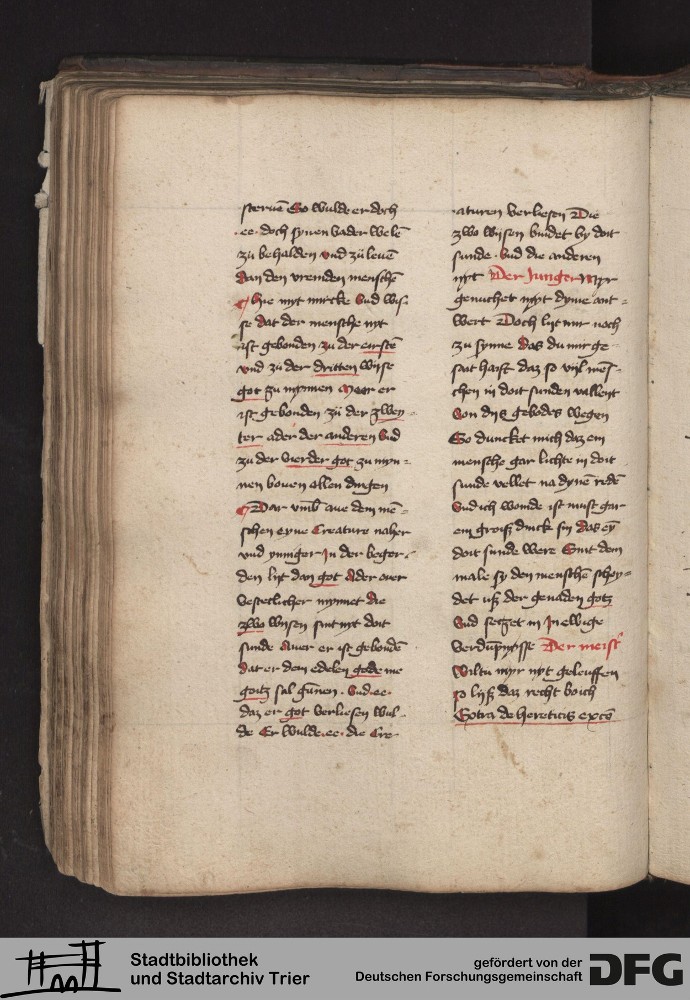 steruē So wulde er doch
ee doch synen vader welē
zu behalden vnd zü leuē
dan den vremden menschē
Hie myt mircke Vnd wis
se dat der mensche nyt
ist gebonden zu der eirstē
vnd zü der dritten wijse
got zu mynnen Meer er
ist gebonden zü der zwey-
ter ader der anderen Vnd
zu der vierder got zu myn-
nen bouen allen dingen
Dar vmb aue dem mē-
schen eyne Creature naher
vnd ynniger In der beger-
den lijt dan got Ader ouer
vestetlicher mynnet die
zwo wysen sint nyt doit
sunde Auer er ist gebondē
dat er dem edelen gode me
goitz sal gunen. Vnd ee
daz er got verliesen wul-
de Er wulde ee die Cre-
aturen verliesen Die
zwo wijsen bindet by doit
sunde Vnd die anderen
nyt Der Junger Myr
genuchet nyt dyne ant-
wert Doch lijt mir noch
zu synne das du mir ge-
sait haist daz so vijl mēs-
chen in doit sunden vallent
Von dys gebodas wegen
So duncket mich daz ein
mensche gar lichte in doit
sunde vellet na dynē redē
Vnd ich wonde ist must gar
ein groiß dinck sin das eȳ
doit sunde were Smt dem
male sy den menschē schey-
det uß der genaden gotz
Vnd setzet in In ewige
verdupnysse Der meistʼ
Wiltu myr nyt geleuffen
so lijß daz recht boich
Extra de hereticis excō
Stadtbibliothek
und Stadtarchiv Trier
gefördert von der
Deutschen Forschungsgemeinschaft
DFG